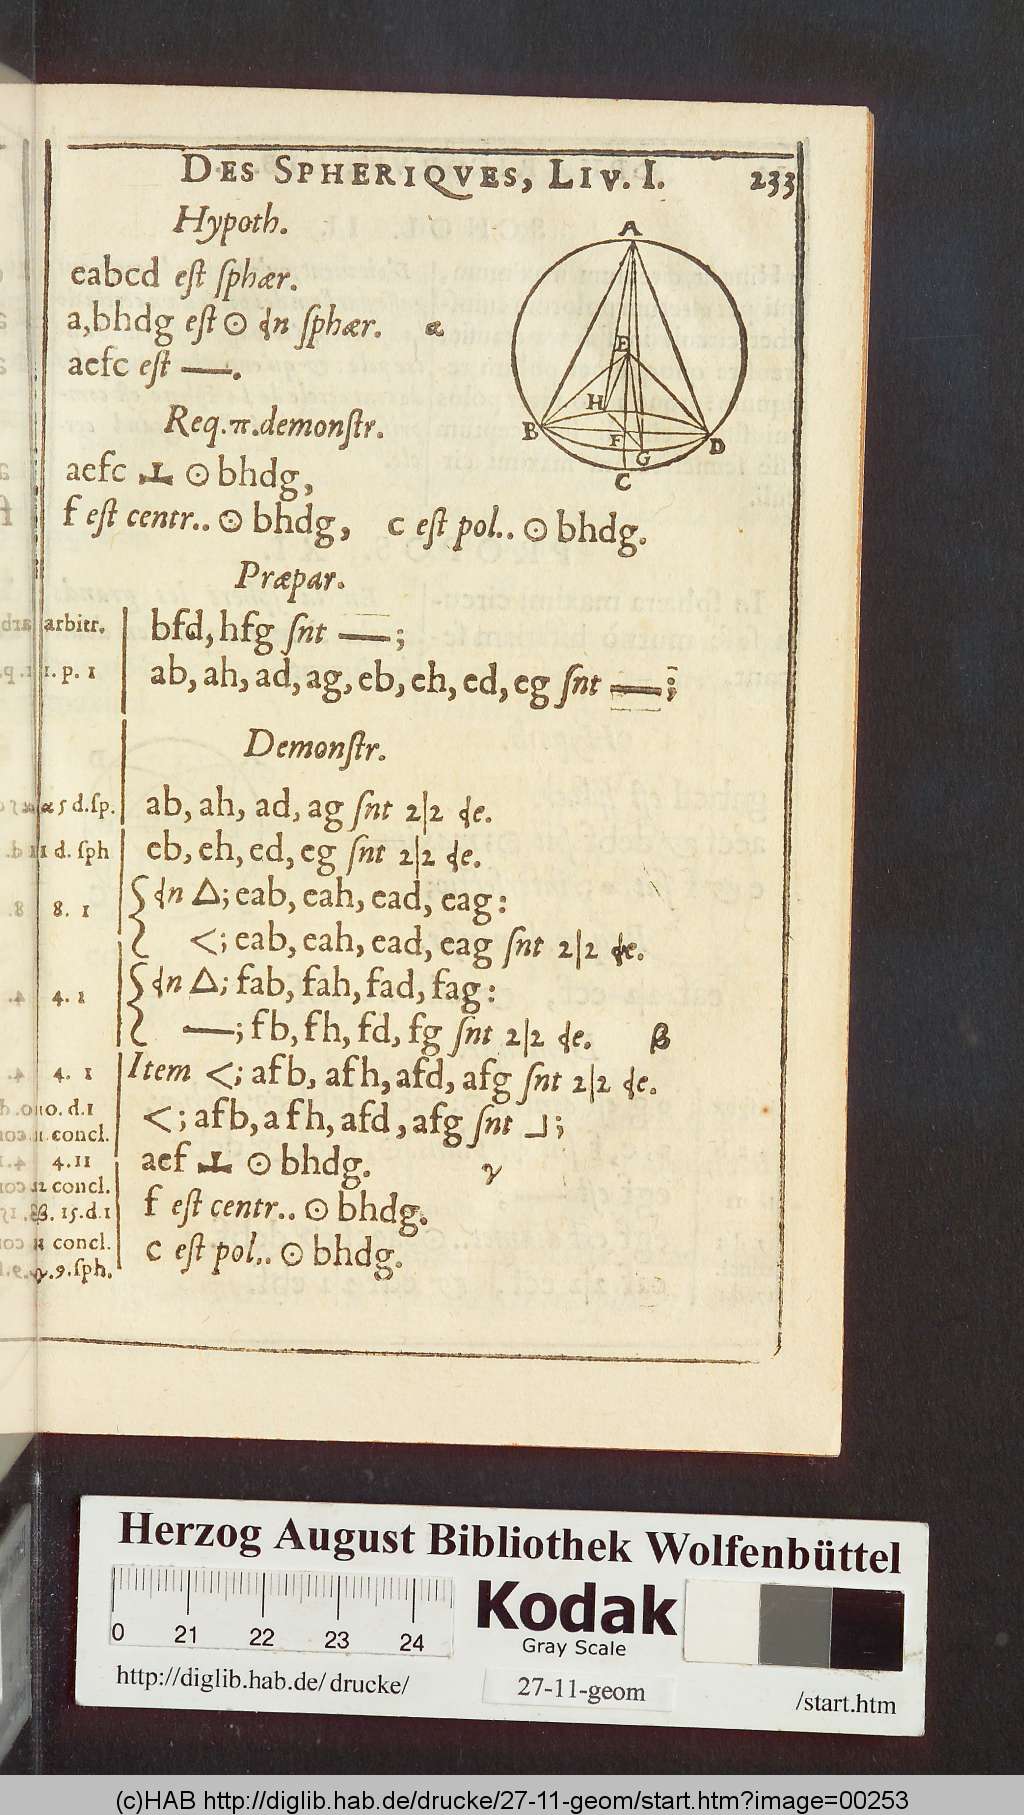 DES SPHERIQVES, LIV. I. 233
Hypoth.
eabcd est sphær.
a,bhdg est ⊙ dn sphær. α
aefc est —.
Req. π. demonstr.
aefc ⊥ ⊙ bhdg,
f est centr.. ⊙ bhdg, c est pol.. ⊙ bhdg.
A
E
H
B
F
G
D
C
Præpar.
arbitr. bfd, hfg snt —;
1. p. 1 ab, ah, ad, ag, eb, eh, ed, eg snt —;
Demonstr.
α 5 d.sp. ab, ah, ad, ag snt 2|2 de.
11 d. sph eb, eh, ed, eg snt 2|2 de.
8. 1 dn △; eab, eah, ead, eag:
<; eab, eah, ead, eag snt 2|2 de.
4. 1 dn △; fab, fah, fad, fag:
—; fb, fh, fd, fg snt 2|2 de. β
4. 1 Item <; afb, afh, afd, afg snt 2|2 de.
10. d.1 <; afb, afh, afd, afg snt ⅃;
1. concl.
4.11 aef ⊥ ⊙ bhdg. γ
2 concl.
β. 15.d.1 f est centr.. ⊙ bhdg.
concl. c est pol.. ⊙ bhdg.
γ.9.sph.
Herzog August Bibliothek Wolfenbüttel
0 21 22 23 24
Kodak
Gray Scale
http://diglib.hab.de/drucke/ 27-11-geom /start.htm
(c)HAB http://diglib.hab.de/drucke/27-11-geom/start.htm?image=00253